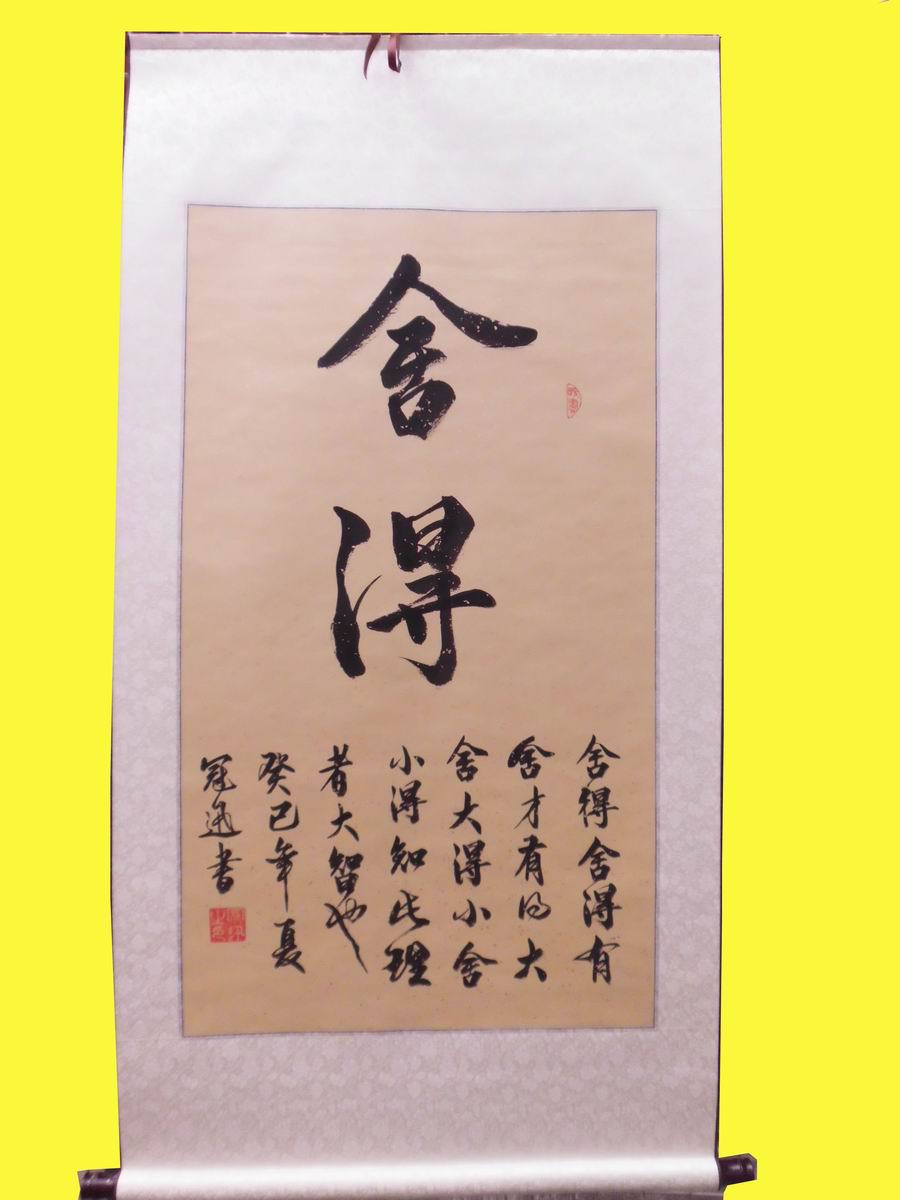 舍
得
舍得舍得有
舍才有得大
舍大得小舍
小得知此理
者大智也
癸巳年夏
冠迅书